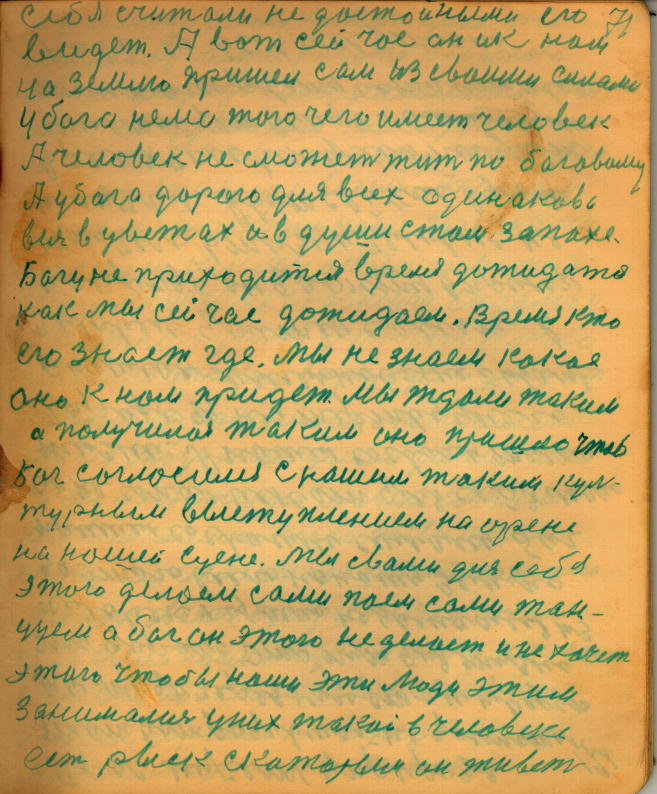 себя считали не достойными его 71
видет. А вот сей час он ик нам
на землю пришел сам из своими силами
У бога нема того чего имеет человек
А человек не сможет жит по боговому
А у бога дорого для всех одинаково
вся в цветах а в душистом запахе.
Богу не приходится время дожидатся
как мы сей час дожидаем. Время кто
его знает где. Мы не знаем какое
оно к нам придет. Мы ждали таким
а получился таким оно пришло чтоб
бог согласился с нашим таким кул-
турным выступлением на арене
на нашей сцене. Мы свами для себя
этого делаем сами поем сами тан-
цуем а бог он этого не делает и не хочет
этого чтобы наши эти люди этим
занимался у них такой в человеке
ест риск с которым он живет